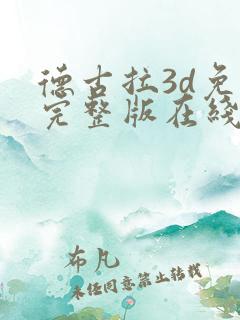 德古拉3d免
完整版在线
布凡
未经同意禁止转载